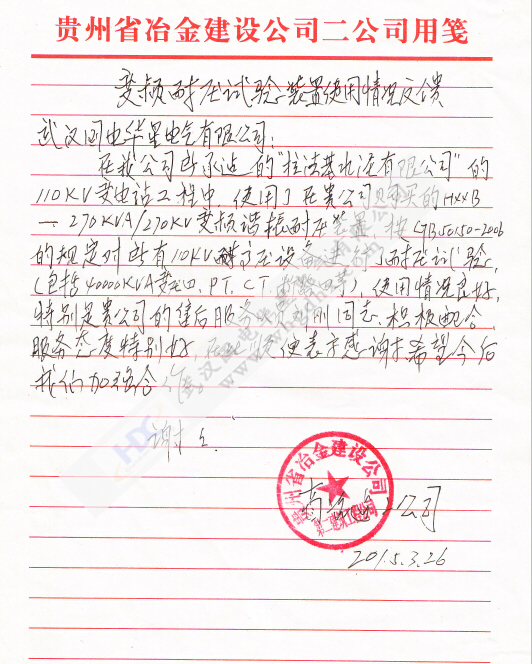 贵州省冶金建设公司二公司用笺
变频耐压试验装置使用情况反馈
武汉国电华星电气有限公司:
在我公司所承建的"拉法基水泥有限公司"的
110KV变电站工程中,使用了在贵公司购买的HXXB
—270KVA/270KV变频谐振耐压装置,按GB50150-2006
的规定对所有110KV 设备进行了耐压试验,
(包括40000KVA变压 、PT、CT、 等),使用情况良好,
特别是贵公司的售后服务 刚同志,积极配合,
服务态度特别好,在此 便表示感谢,希望今后
我们加强合作。
谢谢
贵州省冶金建设公司
二公司
2015.3.26